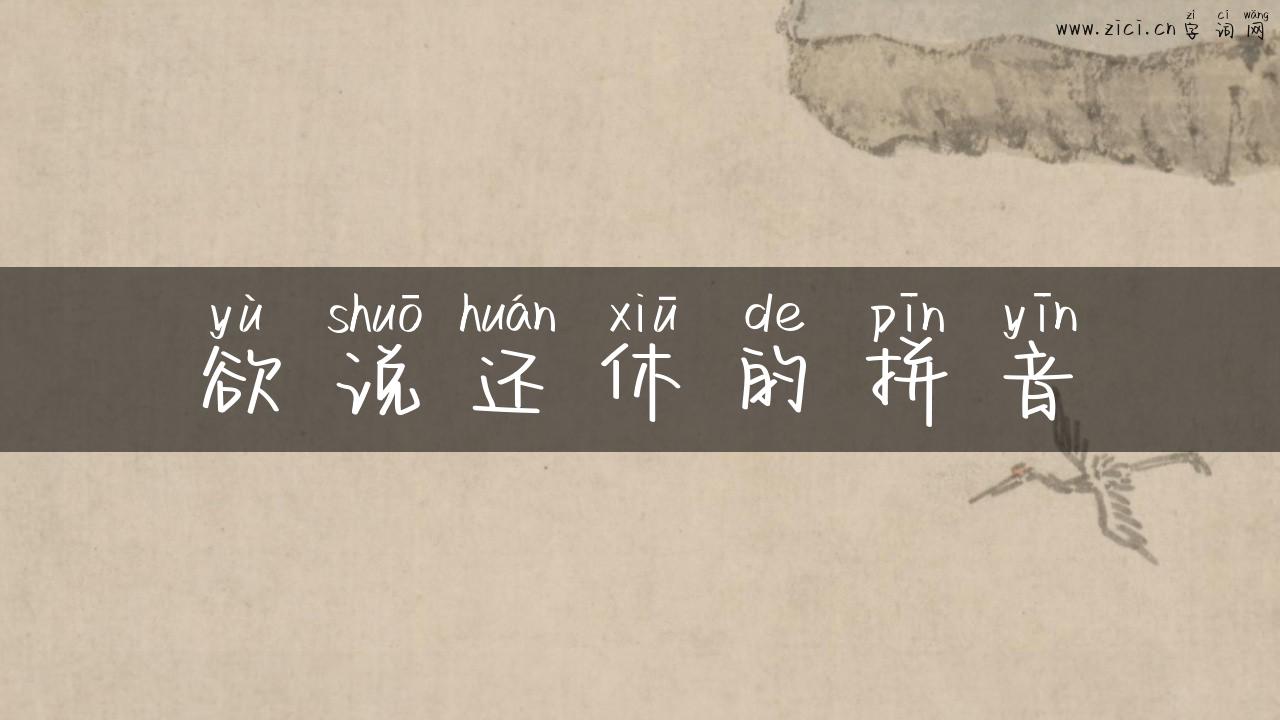 zì cí wǎng
www.zici.cn 字词网
yù shuō huán xiū de pīn yīn
欲说还休的拼音